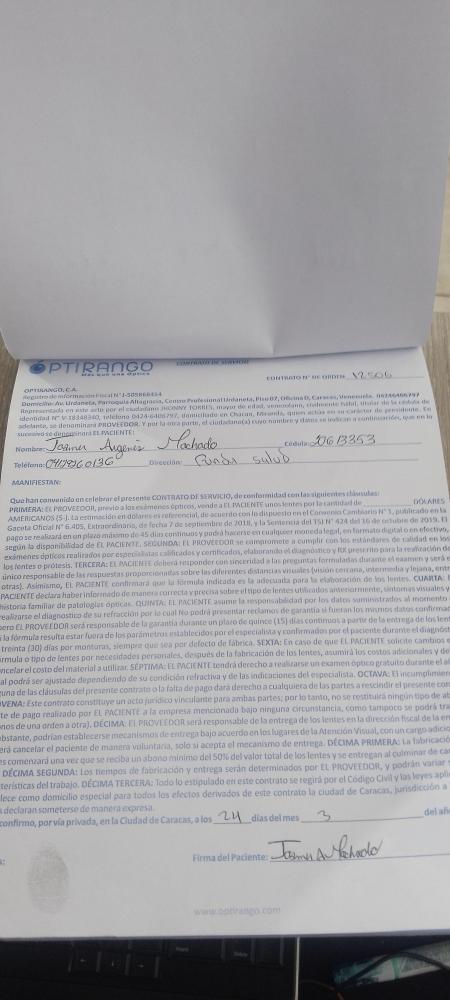 OPTIRANGO
Más que una Óptica
CONTRATO DE SERVICIO
CONTRATO N° DE ORDEN 12506
OPTIRANGO, C.A.
Registro de Información Fiscal N° J-505868454
Domicilio: Av. Urdaneta, Parroquia Altagracia, Centro Profesional Urdaneta, Piso 07, Oficina D, Caracas, Venezuela. 04246406797
Representado en este acto por el ciudadano JHONNY TORRES, mayor de edad, venezolano, civilmente hábil, titular de la cédula de
identidad N° V-18348340, teléfono 0424-6406797, domiciliado en Chacao, Miranda, quien actúa en su carácter de presidente. En
adelante, se denominará PROVEEDOR. Y por la otra parte, el ciudadano(a) cuyo nombre y datos se indican a continuación, que en lo
sucesivo se denominará EL PACIENTE:
Nombre: Machado Cédula: 20613353
Teléfono: Dirección: Funda salud
MANIFIESTAN:
Que han convenido en celebrar el presente CONTRATO DE SERVICIO, de conformidad con las siguientes cláusulas:
PRIMERA: EL PROVEEDOR, previo a los exámenes ópticos, vende a EL PACIENTE unos lentes por la cantidad de DÓLARES
AMERICANOS ($-). La estimación en dólares es referencial, de acuerdo con lo dispuesto en el Convenio Cambiario N° 1, publicado en la
Gaceta Oficial N° 6.405, Extraordinario, de fecha 7 de septiembre de 2018, y la Sentencia del TSJ N° 424 del 16 de octubre de 2019. El
pago se realizará en un plazo máximo de 45 días continuos y podrá hacerse en cualquier moneda legal, en formato digital o en efectivo,
según la disponibilidad de EL PACIENTE. SEGUNDA: EL PROVEEDOR se compromete a cumplir con los estándares de calidad en los
exámenes ópticos realizados por especialistas calificados y certificados, elaborando el diagnóstico y RX prescrito para la realización de
los lentes o prótesis. TERCERA: EL PACIENTE deberá responder con sinceridad a las preguntas formuladas durante el examen y será e
único responsable de las respuestas proporcionadas sobre las diferentes distancias visuales (visión cercana, intermedia y lejana, entre
otras). Asimismo, EL PACIENTE confirmará que la fórmula indicada es la adecuada para la elaboración de los lentes. CUARTA:
PACIENTE declara haber informado de manera correcta y precisa sobre el tipo de lentes utilizados anteriormente, síntomas visuales y
historia familiar de patologías ópticas. QUINTA: EL PACIENTE asume la responsabilidad por los datos suministrados al momento
realizarse el diagnostico de su refracción por lo cual No podrá presentar reclamos de garantía si fueron los mismos datos confirmad
pero EL PROVEEDOR será responsable de la garantía durante un plazo de quince (15) días continuos a partir de la entrega de los len
la fórmula resulta estar fuera de los parámetros establecidos por el especialista y confirmados por el paciente durante el diagnóst
treinta (30) días por monturas, siempre que sea por defecto de fábrica. SEXTA: En caso de que EL PACIENTE solicite cambios e
rmula o tipo de lentes por necesidades personales, después de la fabricación de los lentes, asumirá los costos adicionales y de
ancelar el costo del material a utilizar. SÉPTIMA: EL PACIENTE tendrá derecho a realizarse un examen óptico gratuito durante el a
al podrá ser ajustado dependiendo de su condición refractiva y de las indicaciones del especialista. OCTAVA: El incumplimien
una de las cláusulas del presente contrato o la falta de pago dará derecho a cualquiera de las partes a rescindir el presente con
OVENA: Este contrato constituye un acto jurídico vinculante para ambas partes; por lo tanto, no se restituirá ningún tipo de ab
te de pago realizado por EL PACIENTE a la empresa mencionada bajo ninguna circunstancia, como tampoco se podrá tra
nos de una orden a otra). DÉCIMA: EL PROVEEDOR será responsable de la entrega de los lentes en la dirección fiscal de la em
obstante, podrían establecerse mecanismos de entrega bajo acuerdo en los lugares de la Atención Visual, con un cargo adicio
erá cancelar el paciente de manera voluntaria, solo si acepta el mecanismo de entrega. DÉCIMA PRIMERA: La fabricació
es comenzará una vez que se reciba un abono mínimo del 50% del valor total de los lentes y se entregan al culminar de can
DÉCIMA SEGUNDA: Los tiempos de fabricación y entrega serán determinados por EL PROVEEDOR, y podrán variar s
terísticas del trabajo. DÉCIMA TERCERA: Todo lo estipulado en este contrato se regirá por el Código Civil y las leyes aplic
lece como domicilio especial para todos los efectos derivados de este contrato la ciudad de Caracas, jurisdicción a
s declaran someterse de manera expresa.
confirmo, por vía privada, en la Ciudad de Caracas, a los 24 días del mes 3 del añ
Firma del Paciente: Machado
www.optirango.com